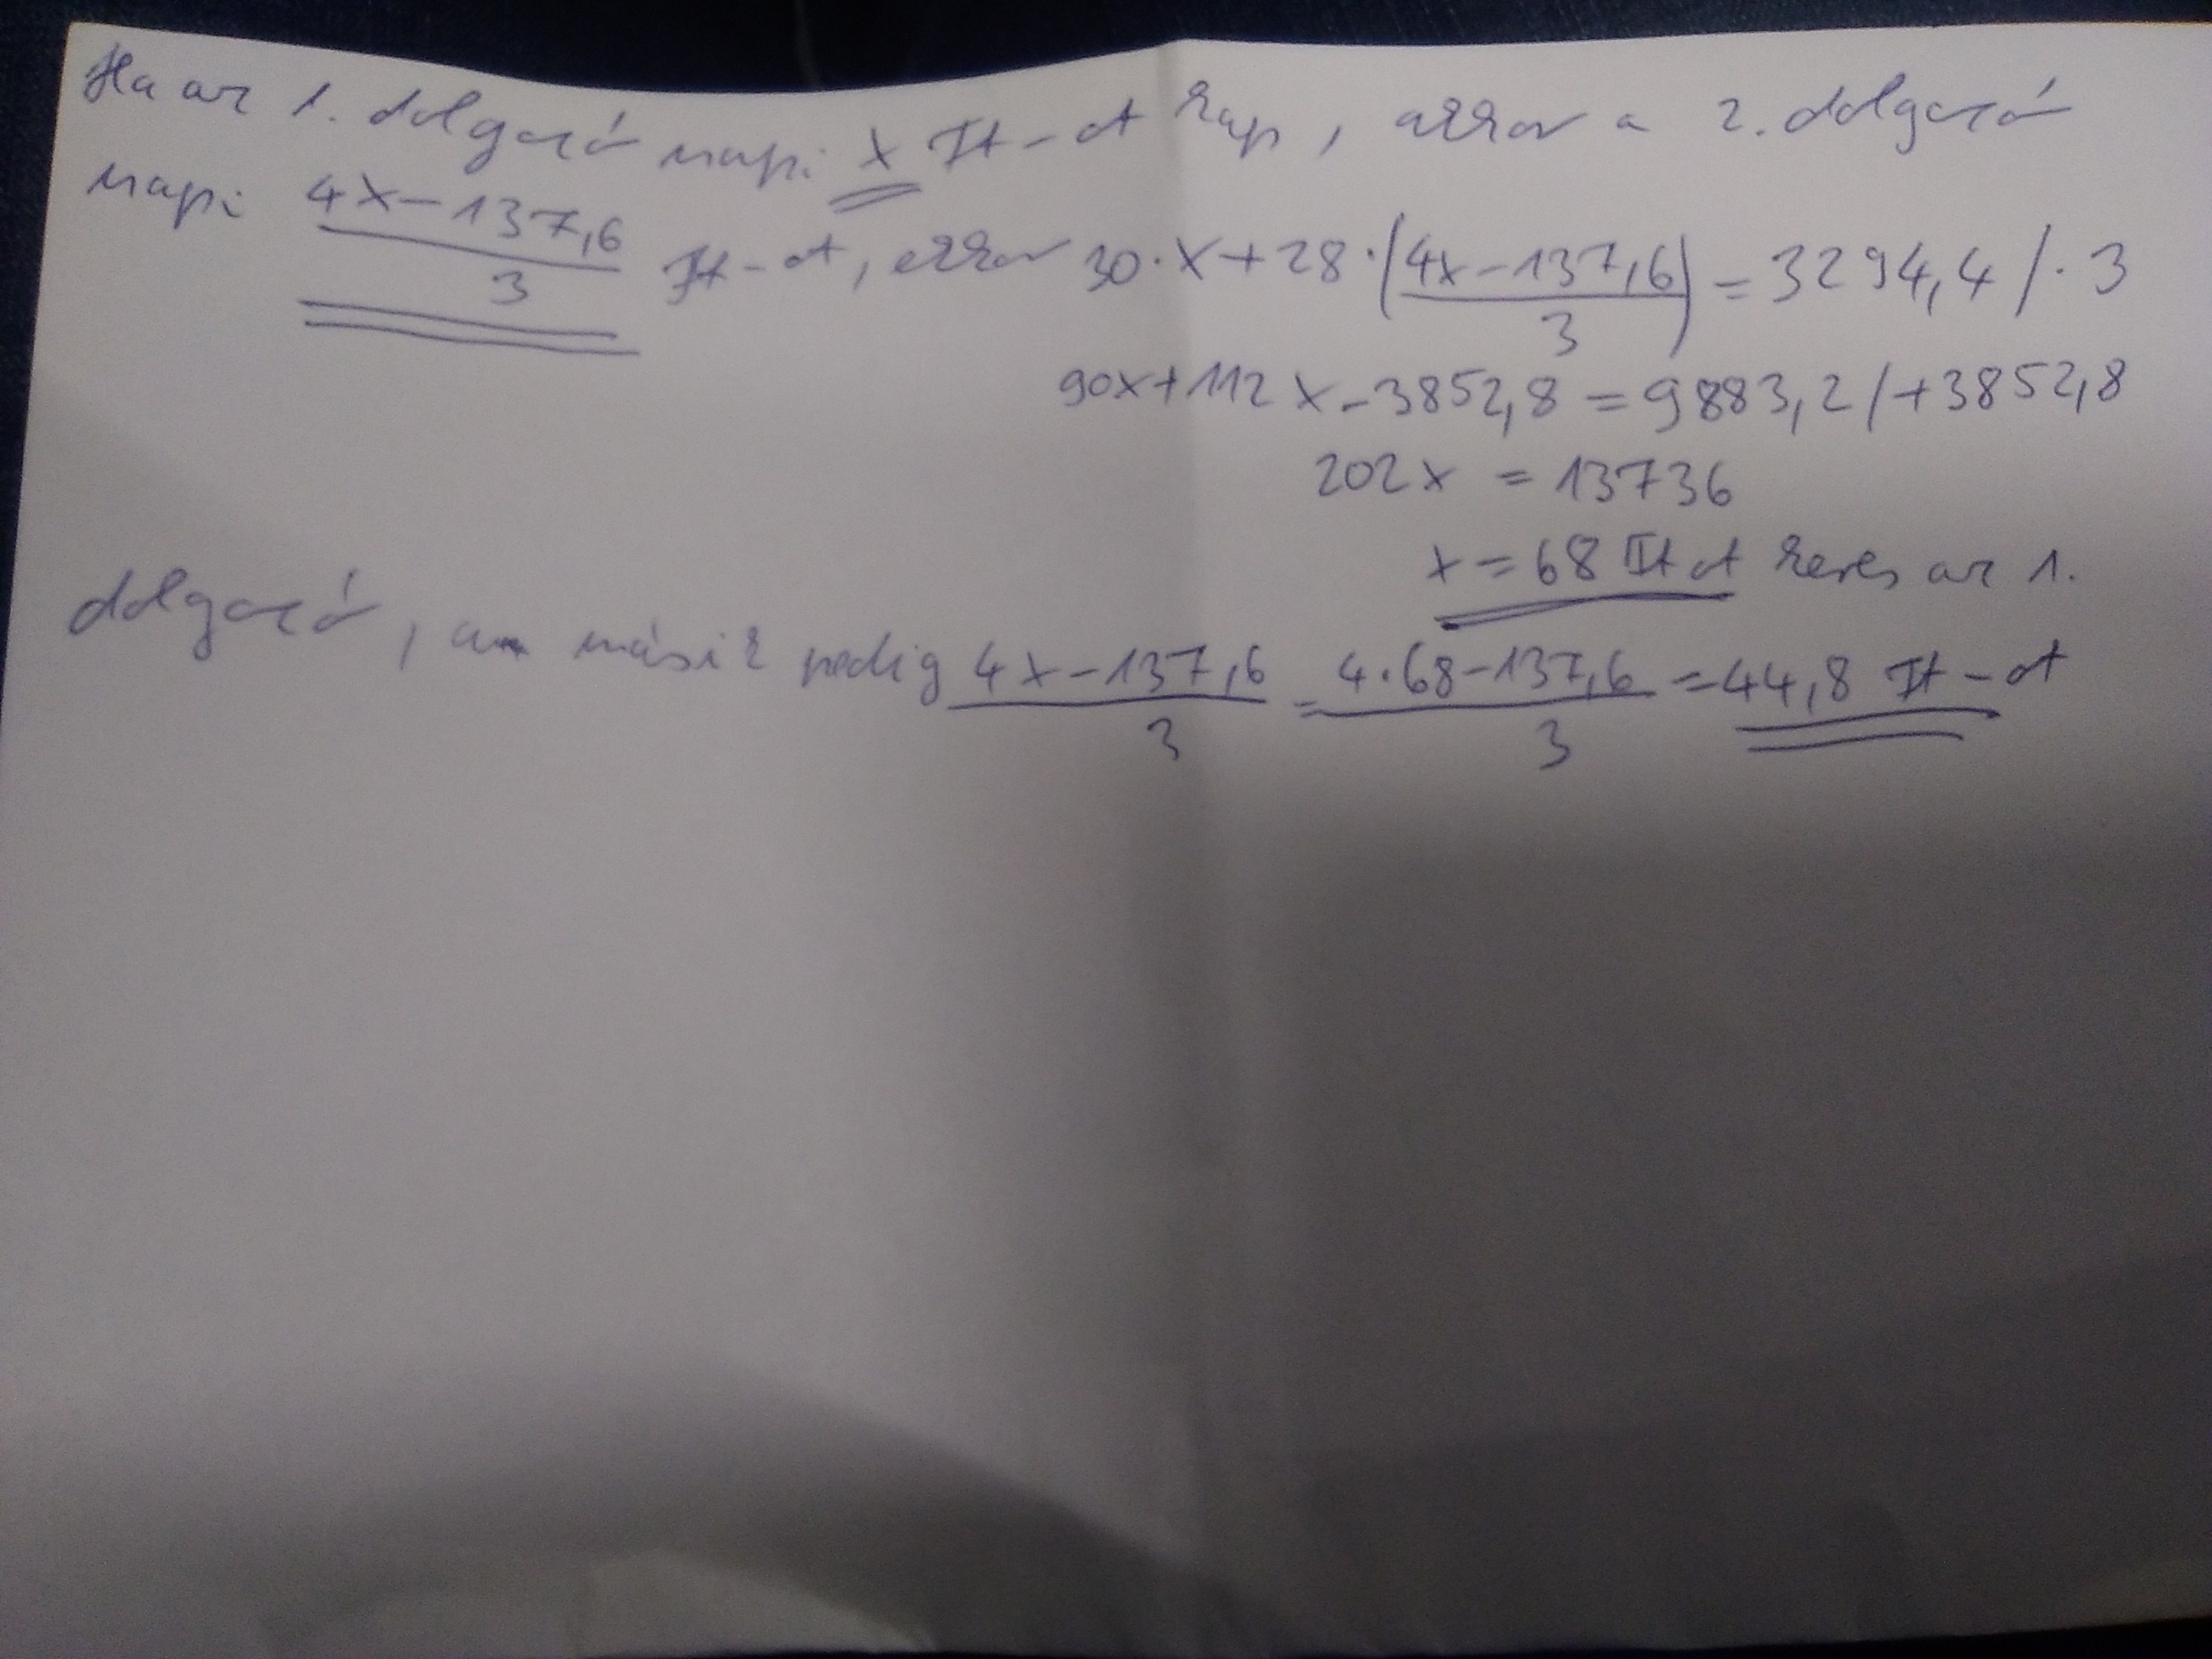 Ha az 1. dolgozó napi x Ft-ot kap, akkor a 2. dolgozó
napi (4x-137,6)/3 Ft-ot, ekkor 30·x+28·((4x-137,6)/3)=3294,4 /·3
90x+112x-3852,8=9883,2/+3852,8
202x = 13736
x=68 Ft ot keres az 1.
dolgozó, a másik pedig (4x-137,6)/3=(4·68-137,6)/3=44,8 Ft-ot